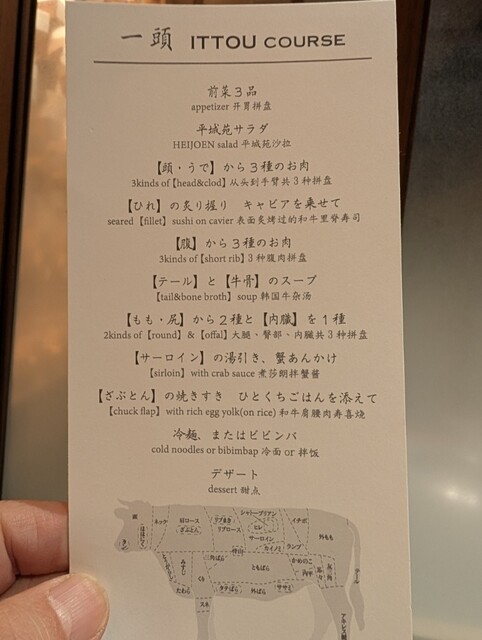 一頭 ITTOU COURSE
前菜3品
appetizer 开胃拼盘
平城苑サラダ
HEIJOEN salad 平城苑沙拉
【頭・うで】から3種のお肉
3kinds of【head&clod】从头到手臂共3种拼盘
【ひれ】の炙り握り キャビアを乗せて
seared【fillet】sushi on cavier 表面炙烤过的和牛里脊寿司
【腹】から3種のお肉
3kinds of【short rib】3种腹肉拼盘
【テール】と【牛骨】のスープ
【tail&bone broth】soup 韩国牛杂汤
【もも・尻】から2種と【内臓】を1種
2kinds of【round】&【offal】大腿、臀部、内臓共3种拼盘
【サーロイン】の湯引き、蟹あんかけ
【sirloin】with crab sauce 煮莎朗拌蟹酱
【ざぶとん】の焼きすき ひとくちごはんを添えて
【chuck flap】with rich egg yolk(on rice) 和牛肩腰肉寿喜烧
冷麺、またはビビンバ
cold noodles or bibimbap 冷面 or 拌饭
デザート
dessert 甜点
シャトーブリアン
ネック
肩ロース
リブまき
ヒレ
イチボ
ざぶとん
リブロース
サーロイン
外もも
カイノミ
ランプ
みすじ
ともばら
かめのこ
くり
たわら
タテばら
外ばら
ササミ
スネ
テール